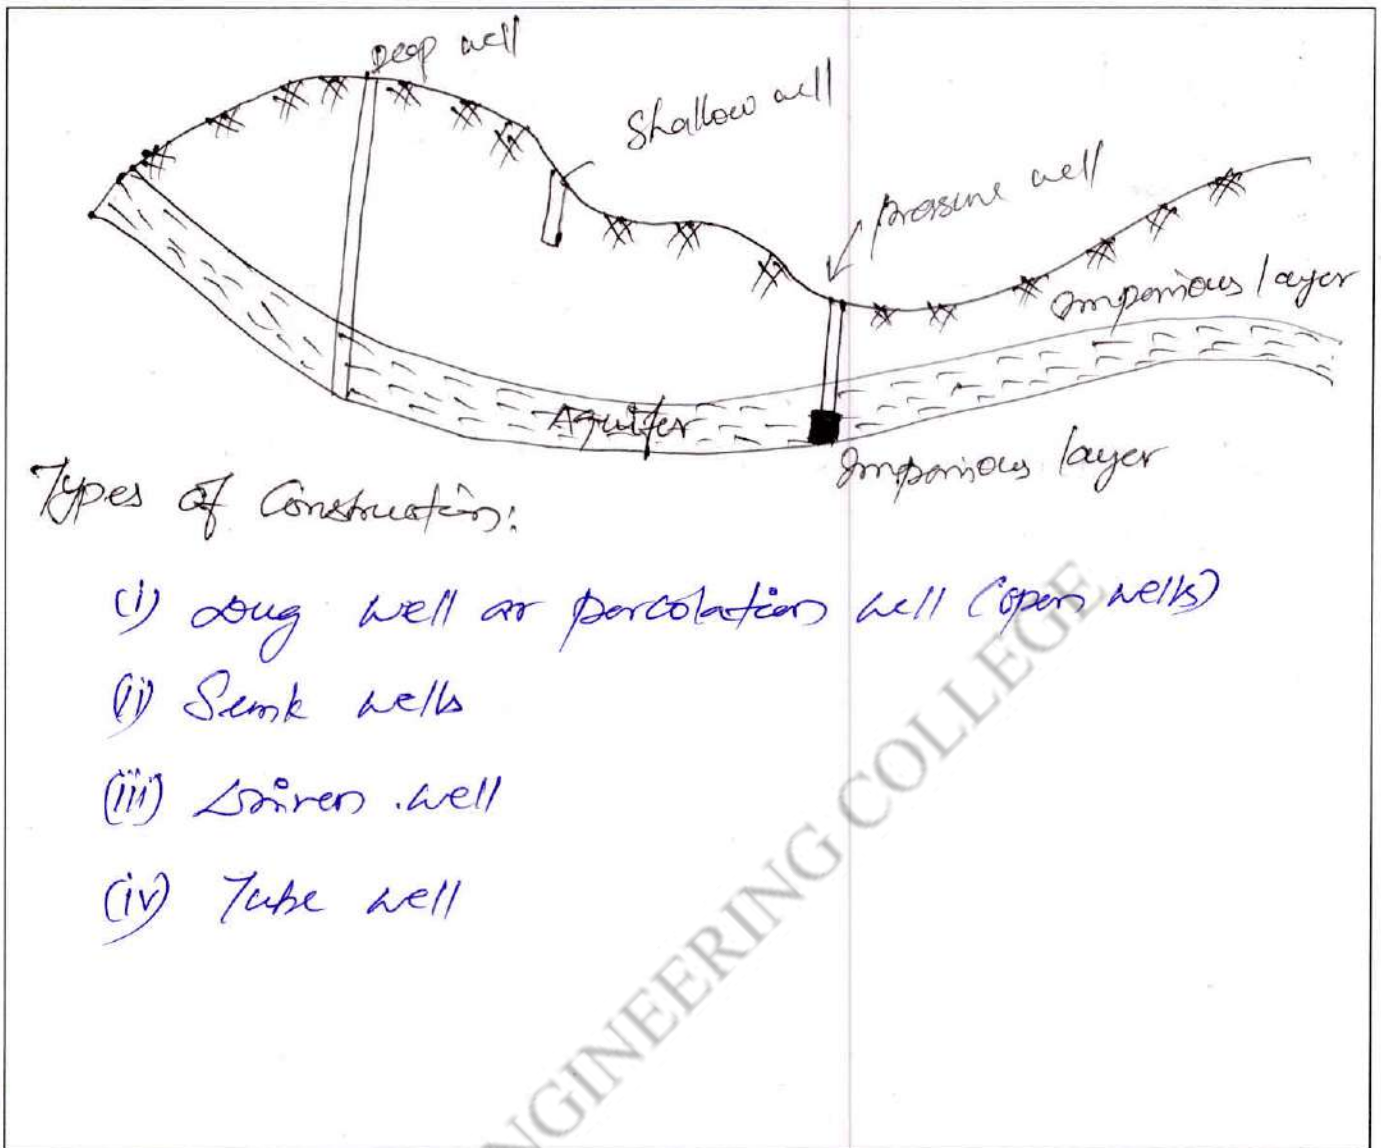 Deep well
Shallow well
pressure well
Impervious layer
Aquifer
Impervious layer
Types of Construction:
(i) Dug well or percolation well (open wells)
(ii) Sunk wells
(iii) Driven well
(iv) Tube well
NGINEERING COLLEGE